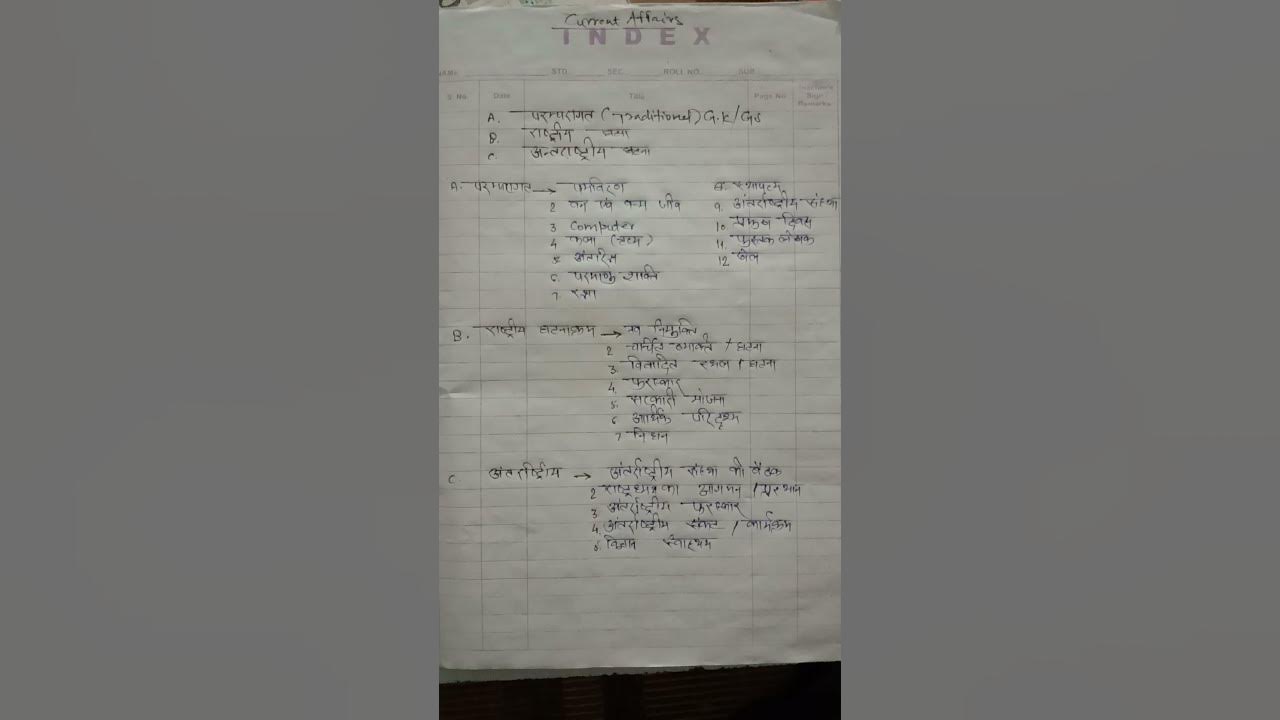 Current Affairs
INDEX
NAME STD. SEC. ROLL NO. SUB.
S. No. Date Title Page No. Sign Remarks
A. परम्परागत (Traditional) G.K/GS
B. राष्ट्रीय घटना
C. अन्तराष्ट्रीय घटना
A. परम्परागत → पर्यावरण
2 वन एवं वन्य जीव
3 Computer
4 कला (नृत्य)
5. अंतरिक्ष
6. परमाणु शक्ति
7. रक्षा
8. स्थापत्य
9. अंतर्राष्ट्रीय संस्था
10. प्रमुख दिवस
11. पुस्तक लेखक
12 खेल
B. राष्ट्रीय घटनाक्रम → नियुक्ति
2 चर्चित व्यक्ति / घटना
3. विवादित स्थल / घटना
4. पुरस्कार
5. सरकारी योजना
6 आर्थिक परिदृश्य
7 निधन
C. अंतर्राष्ट्रीय → अंतर्राष्ट्रीय संस्था की बैठक
2 राष्ट्राध्यक्ष का आगमन / प्रस्थान
3 अंतर्राष्ट्रीय पुरस्कार
4. अंतर्राष्ट्रीय संकट / कार्यक्रम
5. विज्ञान स्वास्थ्य